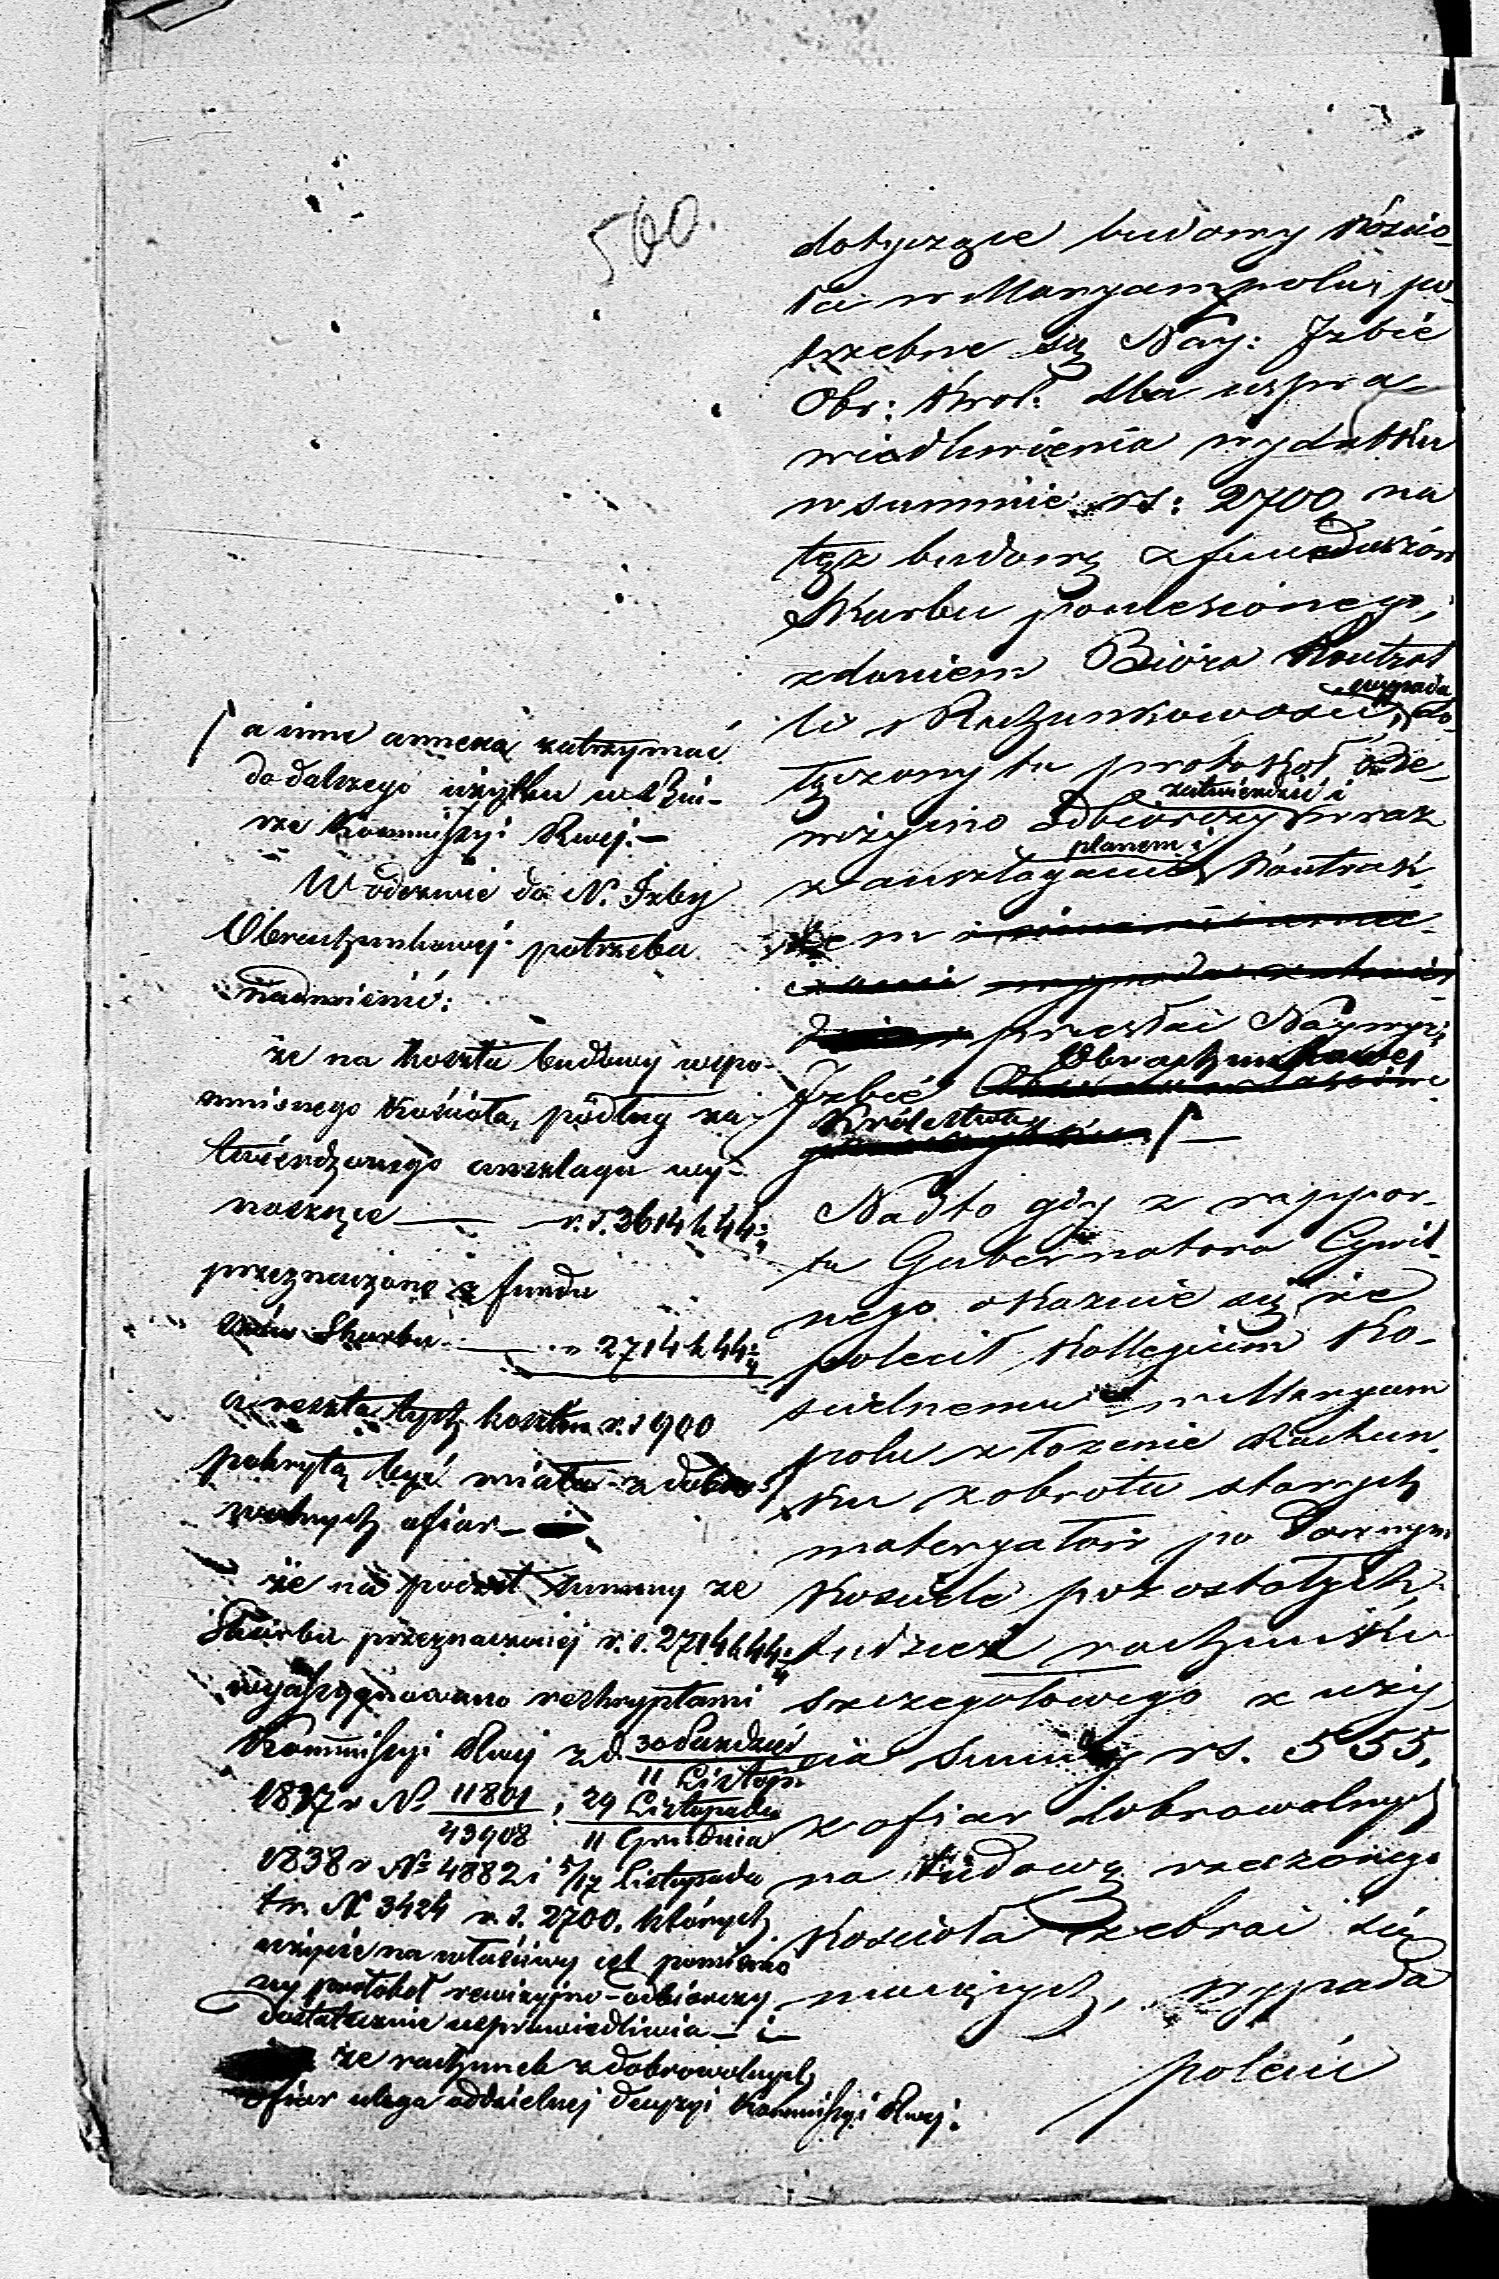 560.
dotyczące budowy Kościo-
ła w Maryampolu, po-
trzebne są Nay: Izbie
Obr: Król: dla uspra-
wiedliwienia wydatku
w summie rs: 2700 na
tęż budowę z funduszów
Skarbu poniesionego,
zdaniem Biura Kontrol
wypada
li i Rachunkowości, do-
łączony tu protokół rewi-
zatwierdzić i
zyjno odbiorczy wraz
planem i
z anszlagami Kontrak-
tem
przesłać Naywyż:
Obrachunkowej
Izbie
Królestwa
Nadto gdy z rappor-
tu Gubernatora Cywil-
nego okazuie się że
polecił Kollegium Ko-
ścielnemu w Maryam
polu złożenie Rachun-
ku z obrotu starych
materyałów po dawnym
Kościele pozostałych,
tudzież rachunku
szczegółowego z uży
cia Summy rs. 555,
z ofiar dobrowolnych
na budowę rzeczonego
Kościoła zebrać się
mających, wypada
polecić
a inne annexa zatrzymać
do dalszego użytku w Biu-
rze Kommissyi Rwej.—
W odezwie do N. Izby
Obrachunkowej potrzeba
nadmienić:
że na koszta budowy wspo-
mnionego Kościoła, podług za-
twierdzonego anszlagu wy-
noszące — r. s. 3614 k 44 3/4
przeznaczone z fundu
szów Skarbu — " 2714 k 44 3/4
a reszta tych kosztów r. s 900
pokrytą być miała z dobro
wolnych ofiar —
że na poczet summy ze
Skarbu przeznaczonej r. s. 2714 k 44 3/4
wyassygnowano reskryptami
Kommissyi Rwej z d. 30 Paździer / 11 Listop
1837 r N. 11801 / 43908; 29 Listopada / 11 Grudnia
1838 r № 4882 i 5/17 Listopada
t r. N 3424 r. s. 2700. których
użycie na właściwy cel pomienio
ny protokół rewizyjno-odbiorczy
dostatecznie usprawiedliwia — i —
że rachunek z dobrowolnych
ofiar ulega oddzielnej decyzyi Kommissyi Rwej.